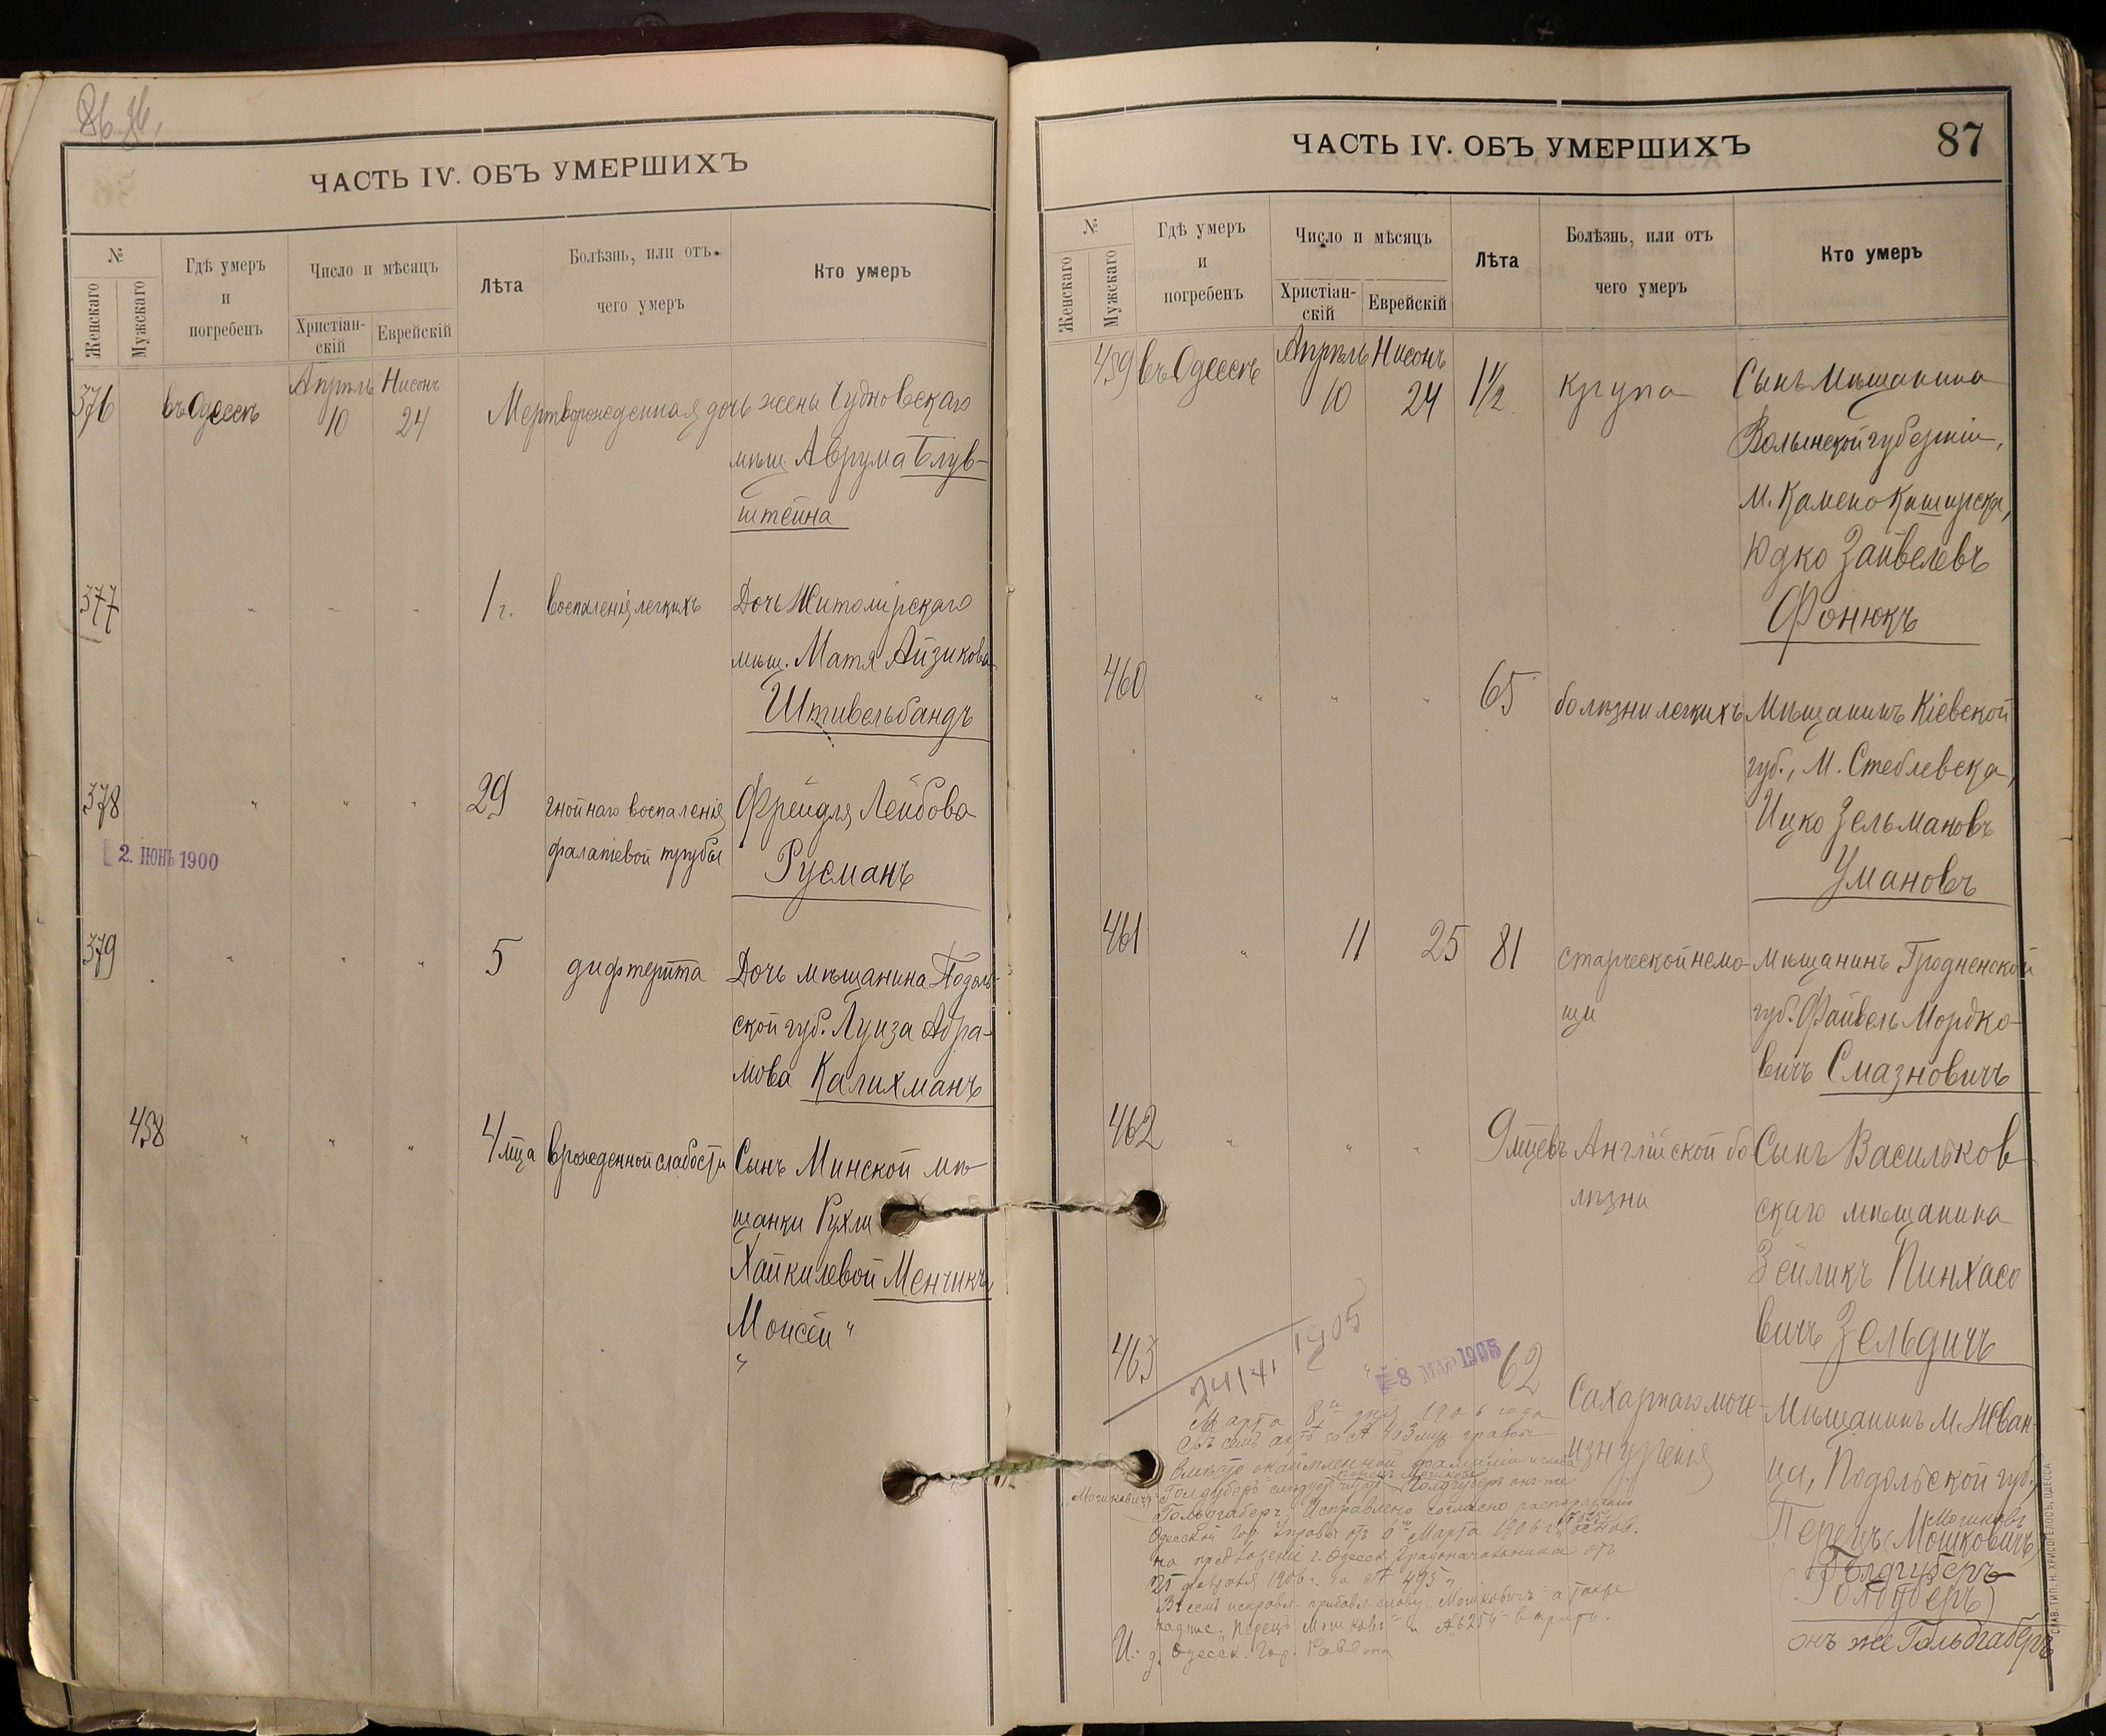 ЧАСТЬ IV. ОБЪ УМЕРШИХЪ
№
Женскаго
Мужскаго
Гдѣ умеръ
и
погребенъ
Число и мѣсяцъ
Христіан-
скій
Еврейскій
Лѣта
Болѣзнь, или отъ
чего умеръ
Кто умеръ
376 въ Одессѣ Апрѣль 10 Нисонъ 24 Мертворожденная дочь жены Чудновскаго
мѣщ. Аврума Блув-
штейна
377 " " " 1 г. воспаленія легкихъ Дочь Житомірскаго
мѣщ. Матя Айзикова
Штивельбандъ
378 " " " 29 гнойнаго воспаленія Фрейдля Лейбова
фалапіевой трубы Русманъ
2. ІЮНЬ 1900
379 " " " 5 дифтерита Дочь мѣщанина Подоль-
ской губ. Луиза Абра-
мова Калихманъ
458 " " " 4 мца врожденной слабости Сынъ Минской мѣ-
щанки Рухли
Хайкилевой Менчикъ
Моисей "
"
ЧАСТЬ IV. ОБЪ УМЕРШИХЪ
87
№
Женскаго
Мужскаго
Гдѣ умеръ
и
погребенъ
Число и мѣсяцъ
Христіан-
скій
Еврейскій
Лѣта
Болѣзнь, или отъ
чего умеръ
Кто умеръ
459 въ Одессѣ Апрѣль 10 Нисонъ 24 1 1/2 крупа Сынъ мѣщанина
Волынской губерніи,
м. Камено Каширска,
Юдко Зайвелевъ
Фонюкъ
460 " " " 65 болѣзни легкихъ Мѣщанинъ Кіевской
губ., м. Стеблевска,
Ицко Зельмановъ
Умановъ
461 " 11 25 81 старческой немо- Мѣщанинъ Гродненской
щи губ. Файвель Мордко-
вичъ Смазновичъ
462 " " " 9 мцевъ Англійской бо Сынъ Васильков
лѣзни скаго мѣщанина
Зейликъ Пинхасо
вичъ Зельдичъ
463 1905 " 8 МАР 1906 62 Сахарнаго моче- Мѣщанинъ м. Жван-
изнуренія ца, Подольской губ.,
Мошковъ
Перецъ (Мошковичъ)
Гольдгуберъ
онъ же Гольдгаберъ
Марта 8го дня 1906 года
Въ семъ актѣ за № 463 муж. графы
вмѣсто фамиліи и слова
Перецъ Мошковъ
"Мошковичъ" Голдуберъ слѣдуетъ Голдгуберъ онъ же
Гольдгаберъ. Исправлено согласно распоряженію
Одесской Гор. Управы отъ 6го Марта 1906 г. основ.
на предложеніи г. Одесск. Градоначальника отъ
25 февраля 1906 г. за № 495
В семъ исправл. прибавл. слову "Мошковичъ" а также
надпис. "Перецъ Мошковъ" и "№ 6254" вѣрить.
И. д. Одесск. Гор. Раввина
СЛАВ. ТИП. Н. ХРИСОГЕЛОСЪ, ОДЕССА